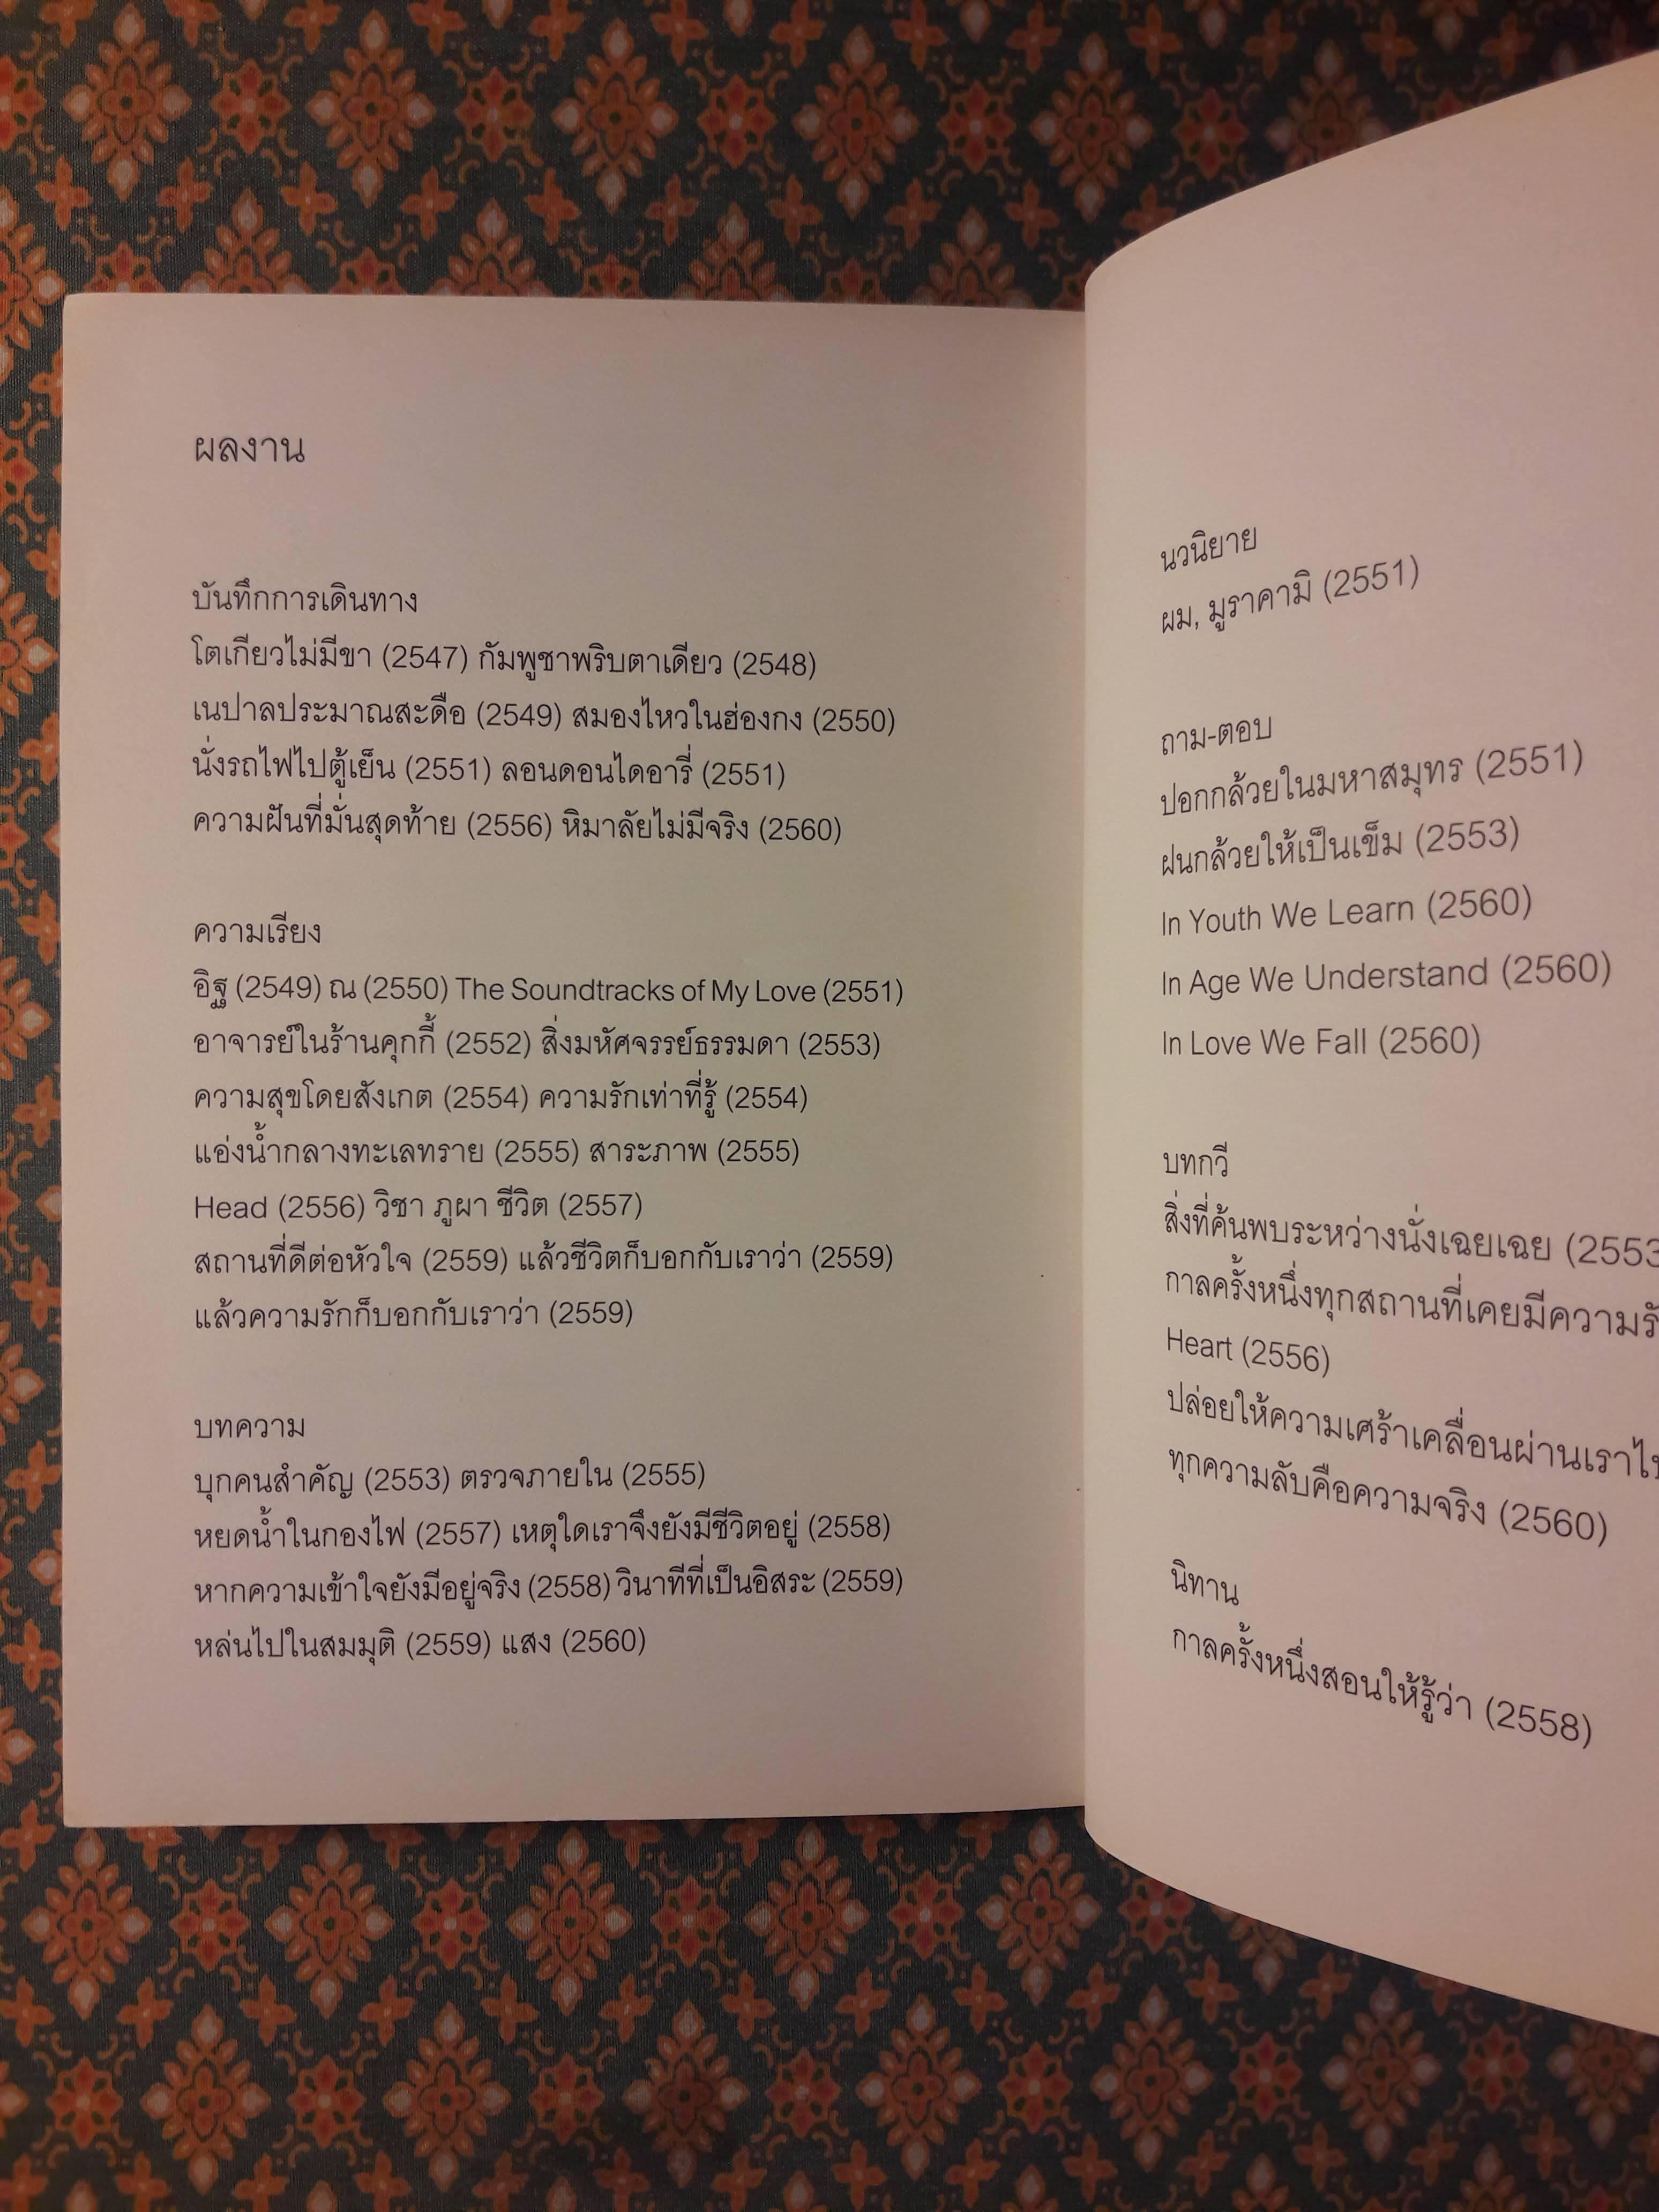 ผลงาน
บันทึกการเดินทาง
โตเกียวไม่มีขา (2547) กัมพูชาพริบตาเดียว (2548)
เนปาลประมาณสะดือ (2549) สมองไหวในฮ่องกง (2550)
นั่งรถไฟไปตู้เย็น (2551) ลอนดอนไดอารี่ (2551)
ความฝันที่มั่นสุดท้าย (2556) หิมาลัยไม่มีจริง (2560)
ความเรียง
อิฐ (2549) ณ (2550) The Soundtracks of My Love (2551)
อาจารย์ในร้านคุกกี้ (2552) สิ่งมหัศจรรย์ธรรมดา (2553)
ความสุขโดยสังเกต (2554) ความรักเท่าที่รู้ (2554)
แอ่งน้ำกลางทะเลทราย (2555) สาระภาพ (2555)
Head (2556) วิชา ภูผา ชีวิต (2557)
สถานที่ดีต่อหัวใจ (2559) แล้วชีวิตก็บอกกับเราว่า (2559)
แล้วความรักก็บอกกับเราว่า (2559)
บทความ
บุกคนสำคัญ (2553) ตรวจภายใน (2555)
หยดน้ำในกองไฟ (2557) เหตุใดเราจึงยังมีชีวิตอยู่ (2558)
หากความเข้าใจยังมีอยู่จริง (2558) วินาทีที่เป็นอิสระ (2559)
หล่นไปในสมมุติ (2559) แสง (2560)
นวนิยาย
ผม, มูราคามิ (2551)
ถาม-ตอบ
ปอกกล้วยในมหาสมุทร (2551)
ฝนกล้วยให้เป็นเข็ม (2553)
In Youth We Learn (2560)
In Age We Understand (2560)
In Love We Fall (2560)
บทกวี
สิ่งที่ค้นพบระหว่างนั่งเฉยเฉย (2553
กาลครั้งหนึ่งทุกสถานที่เคยมีความรั
Heart (2556)
ปล่อยให้ความเศร้าเคลื่อนผ่านเราไป
ทุกความลับคือความจริง (2560)
นิทาน
กาลครั้งหนึ่งสอนให้รู้ว่า (2558)